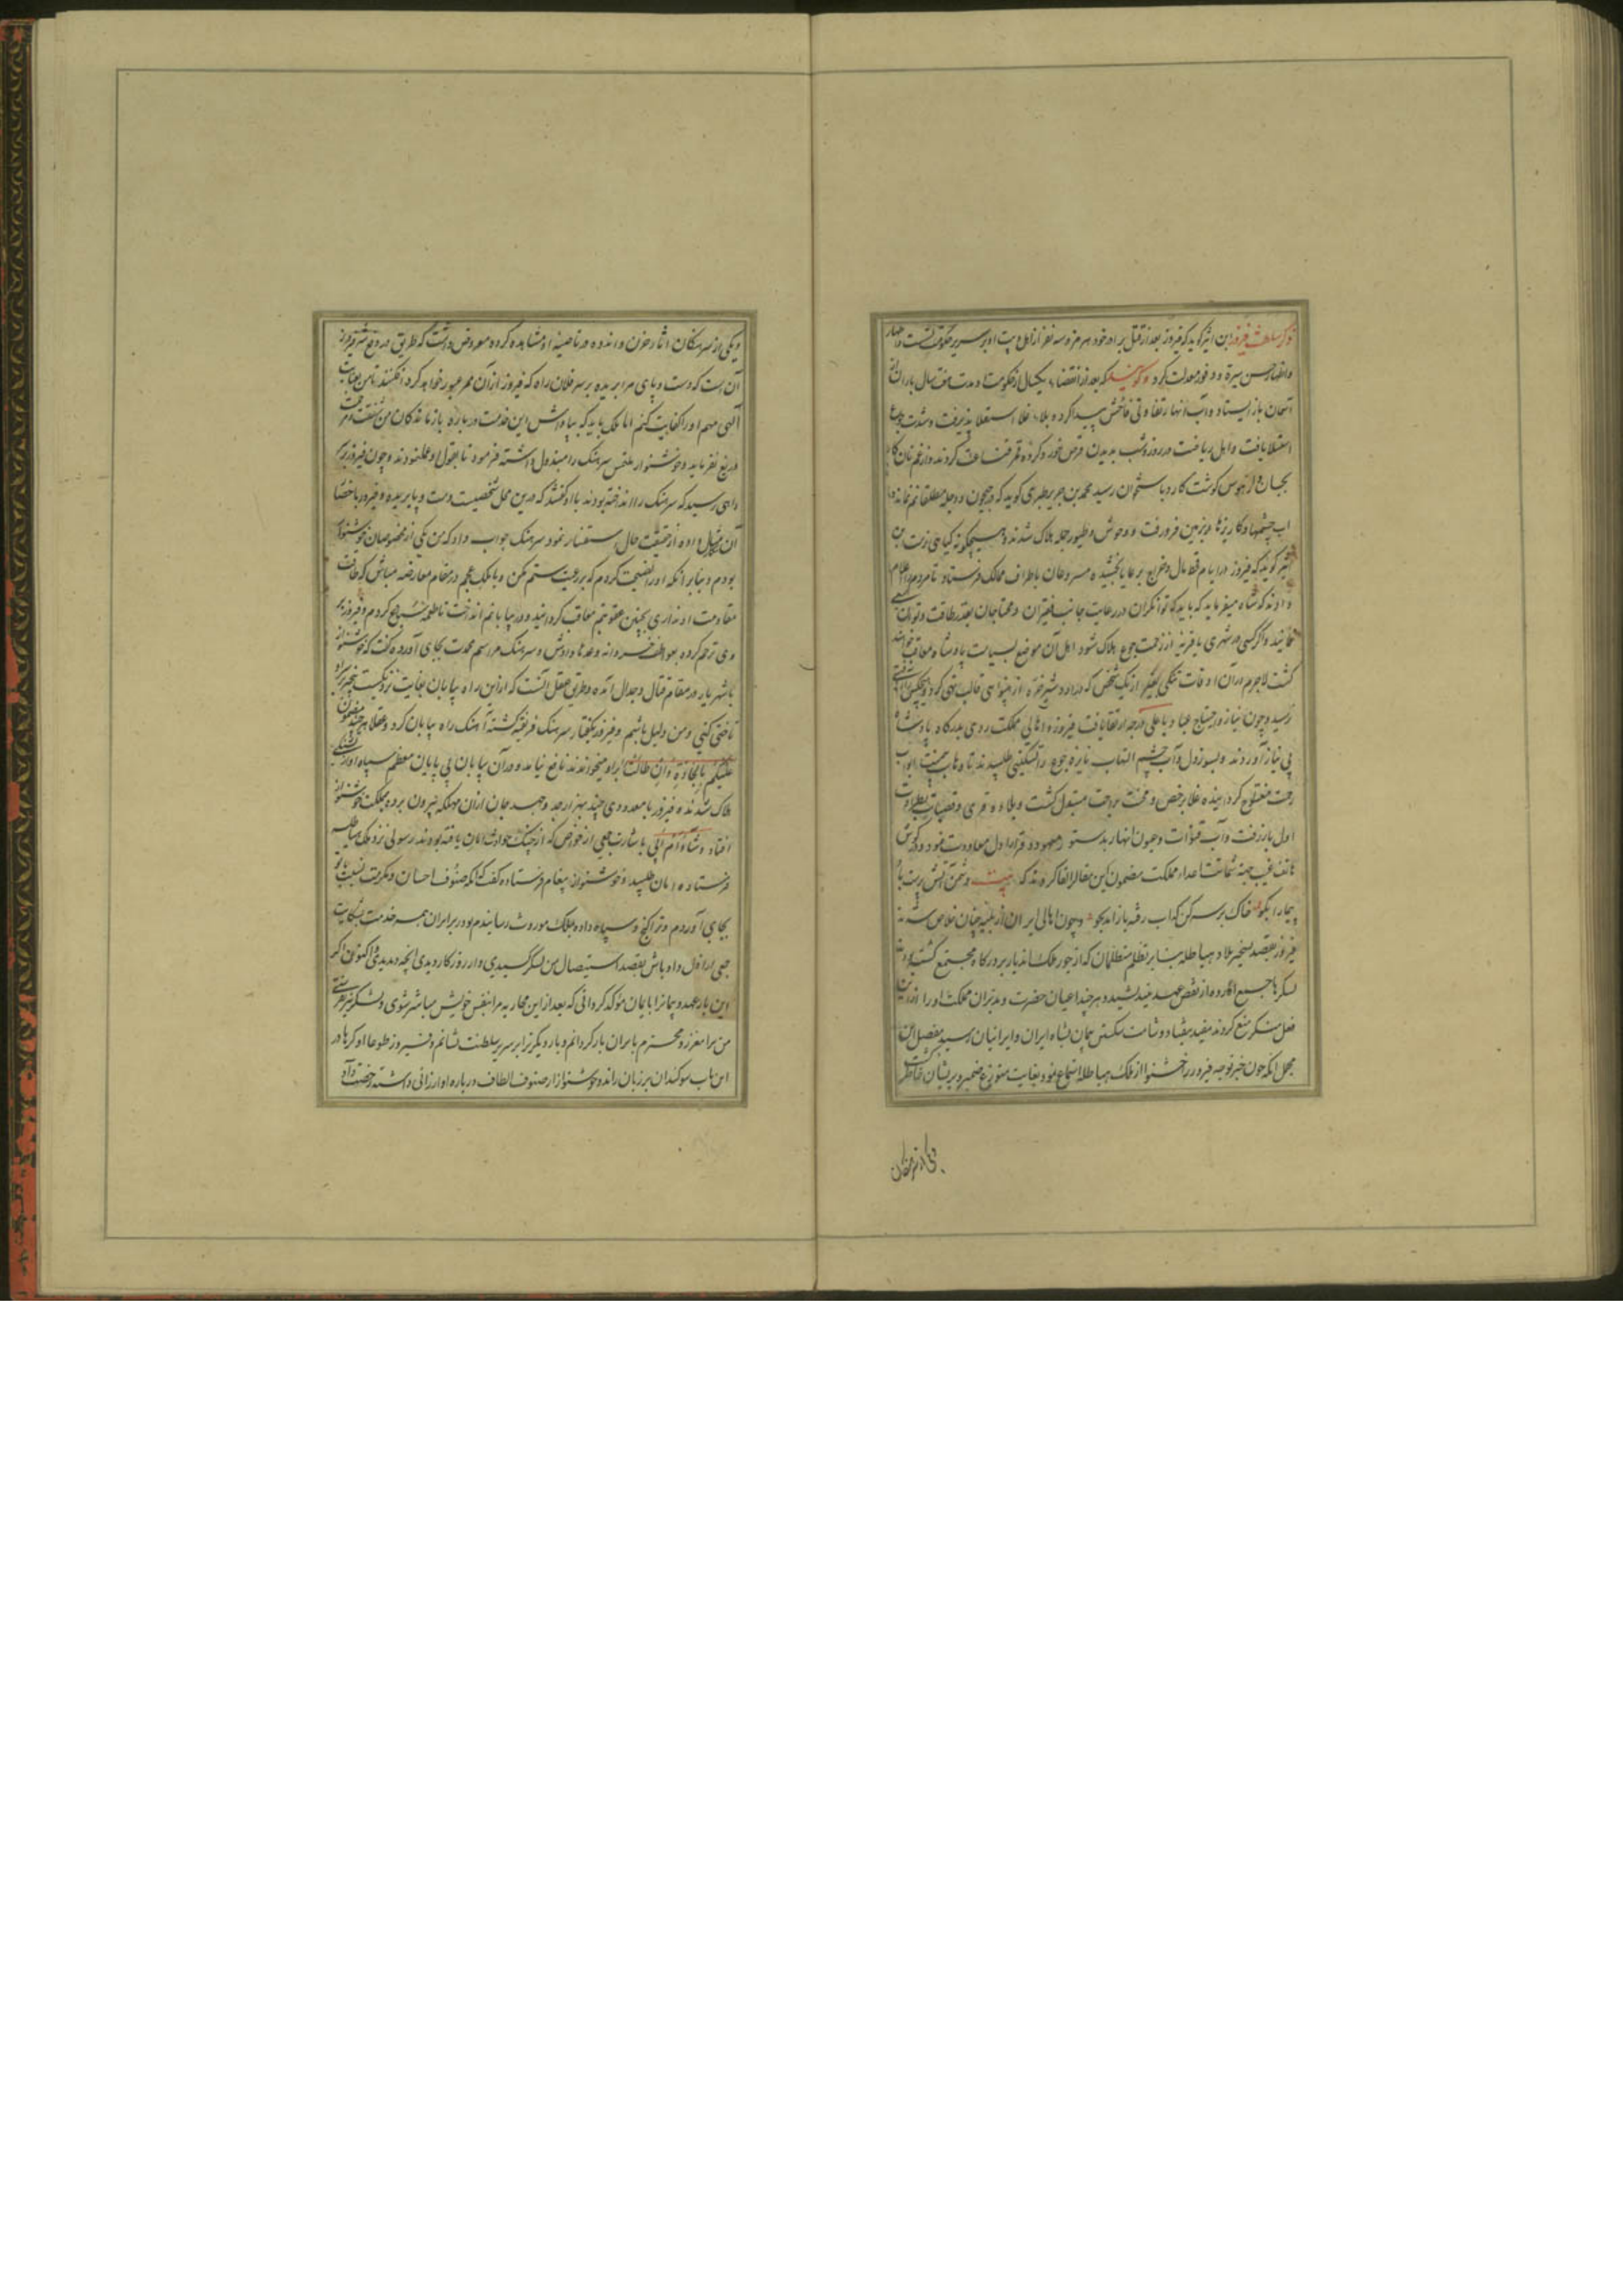 ذکر سلطنت فیروز ابن اثیر کوید که فیروز بعد از قتل برادر خود هرمز و سه نفر از اهل بیت او بر سریر حکومت نشست و
واظهار حسن سیرة و وفور معدلت کرد و کویند که بعد از انقضاء یکسال از حکومت او مدت هفت سال باران از
آسمان باز ایستاد و آب انهار تفاوتی فاحش پیدا کرد و بلاء غلا استعلا پذیرفت و شدت جوع
استیلا یافت و اهل ریاضت در روز و شب بدیدن قرص خور و کرده قمر قناعت کردند و از غم نان کارد
بجان و از هوس کوشت کارد باستخوان رسید محمد بن جریر طبری کوید که در جیحون و دجله مطلقا نم نماند و
اب چشمها و کاریزها در زمین فرو رفت و وحوش و طیور جمله هلاک شدند و هیچکونه کیاهی نرست
کویند که فیروز در ایام قحط مال و خرج بر رعایا بخشیده مسرعان باطراف ممالک فرستاد تا مردم را اعلام
دادند که شاه میفرماید که باید که توانکران در رعایت جانب فقیران و محتاجان بقدر طاقت و توان سعی
نمایند و اکر کسی در شهری یا قریه از زحمت جوع هلاک شود اهل آن موضع بسیاست پادشاه معاقب خواهند
کشت لاجرم در آن اوقات تنکی بغیر از یک شخص که در اردشیر خره از بینوایی قالب تهی کرد و هیچکس را آفتی
نرسید و چون نیاز و احتیاج عباد باعلی درجه ارتقا یافت فیروز و اهالی مملکت روی بدرکاه پادشاه
بی نیاز آوردند و بسوز دل و آب چشم التهاب نایره جوع را تسکینی طلبیدند تا وهاب بیمنت ابواب
رحمت مفتوح کردانیده غلا برخص و محنت براحت مبتدل کشت و بلاد و قری و قصبات بطراوت
اول باز رفت و آب قنوات و عیون و انهار بدستور معهود و قرار اول معاودت نمود و کوش
هاتف غیب جهة شماتت اعداء مملکت مضمون این مقال را القا کردند که بیت دشمن آتش پرست باد
پیما را بکو خاک بر سر کن که آب رفته باز آمد بجو و چون اهالی ایران از بلیه چنان خلاص شدند
فیروز بقصد تسخیر بلاد هیاطله بنا بر تظلم متظلمان که از جور ملک اندیار بر درکاه مجتمع کشته بودند
لشکرها جمیع آورده از نقض عهد نیندیشید و هر چند اعیان حضرت و مدبران مملکت او را از این
فعل منکر منع کردند مفید نیفتاد و شامت شکستن پیمان بشاه ایران و ایرانیان رسید تفصیل این
مجمل انکه چون خبر توجه فیروز را خوشنواز ملک هیاطله استماع نمود بغایت متوزع ضمیر و پریشان خاطر کشت
و یکی از سرهنکان آثار حزن و اندوه در ناصیه او مشاهده کرده معروض داشت که طریق دفع شر فیروز
آن است که دست و پای مرا بریده بر سر فلان راه که فیروز از آن ممر عبور خواهد کرد افکنند تا من بعنایت
آلهی مهم او را کفایت کنم اما ملک باید که بپاداش این خدمت در باره بازماندکان من شفقت و مرحمت
دریغ نفرماید و خوشنواز ملتمس سرهنک را مبذول داشته فرمود تا بقول او عمل نمودند و چون فیروز بر
راهی رسید که سرهنک را انداخته بودند با او کفتند که درین محل شخصیست دست و پا بریده و فیروز باحضار
آن مثال داده از حقیقت حال استفسار نمود سرهنک جواب داد که من یکی از مخصوصان خوشنواز
بودم و بنابر آنکه او را نصیحت کردم که بر رعیت ستم مکن و با ملک عجم در مقام معارضه مباش که طاقت
مقاومت او نداری بچنین عقوبتم معاقب کردانید و در بیابانم انداخت تا طعمه سباع کردم و فیروز بر
وی ترحم کرده بعواطف خسروانه وعدها دادش و سرهنک مراسم محمدت بجای آورده کفت که خوشنواز
با شهریار در مقام قتال و جدال آمده و طریق عقل آنست که از این راه بیابان بغایت نزدیکست بیخبر بر او
تاختی کنی و من دلیل باشم و فیروز بکفتار سرهنک فریفته کشته آهنک راه بیابان کرد و عقلا هر چند مضمون
علیکم بالجادة وان طالت بر او میخواندند نافع نیامد و در آن بیابان بی پایان معظم سپاه او از تشنکی
هلاک شدند و فیروز با معدودی چند بهزار جد و جهد جان از آن مهلکه بیرون برده بمملکت خوشنواز
افتاد و شاء ام ابی باشارت جمعی از خواص که از چنک حوادث امان یافته بودند رسولی نزد ملک هیاطله
فرستاده امان طلبید و خوشنواز پیغام فرستاده کفت که آنکه صنوف احسان و مکرمت نسبت بتو
بجای آوردم و ترا کنج و سپاه داده بملک موروث رسانیدم بود در برابر آن همه خدمت بشکایت
جمعی اراذل و اوباش بقصد استیصال من لشکر کشیدی و از روزکار دیدی آنچه دیدی و اکنون اکر
این بار عهد و پیمان را بایمان مؤکد کردانی که بعد از این محاربه مرا بنفس خویش مباشر نشوی و لشکر نیز نفرستی
من ترا معزز و محترم بایران باز کردانم و بار دیکر ترا بر سریر سلطنت نشانم و فیروز طوعا او کرها در
این باب سوکندان بر زبان رانده خوشنواز از صنوف الطاف در باره او ارزانی داشته رخصت داد